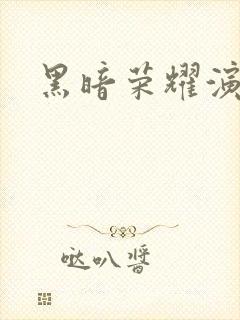 黑暗荣耀演
哒叭酱